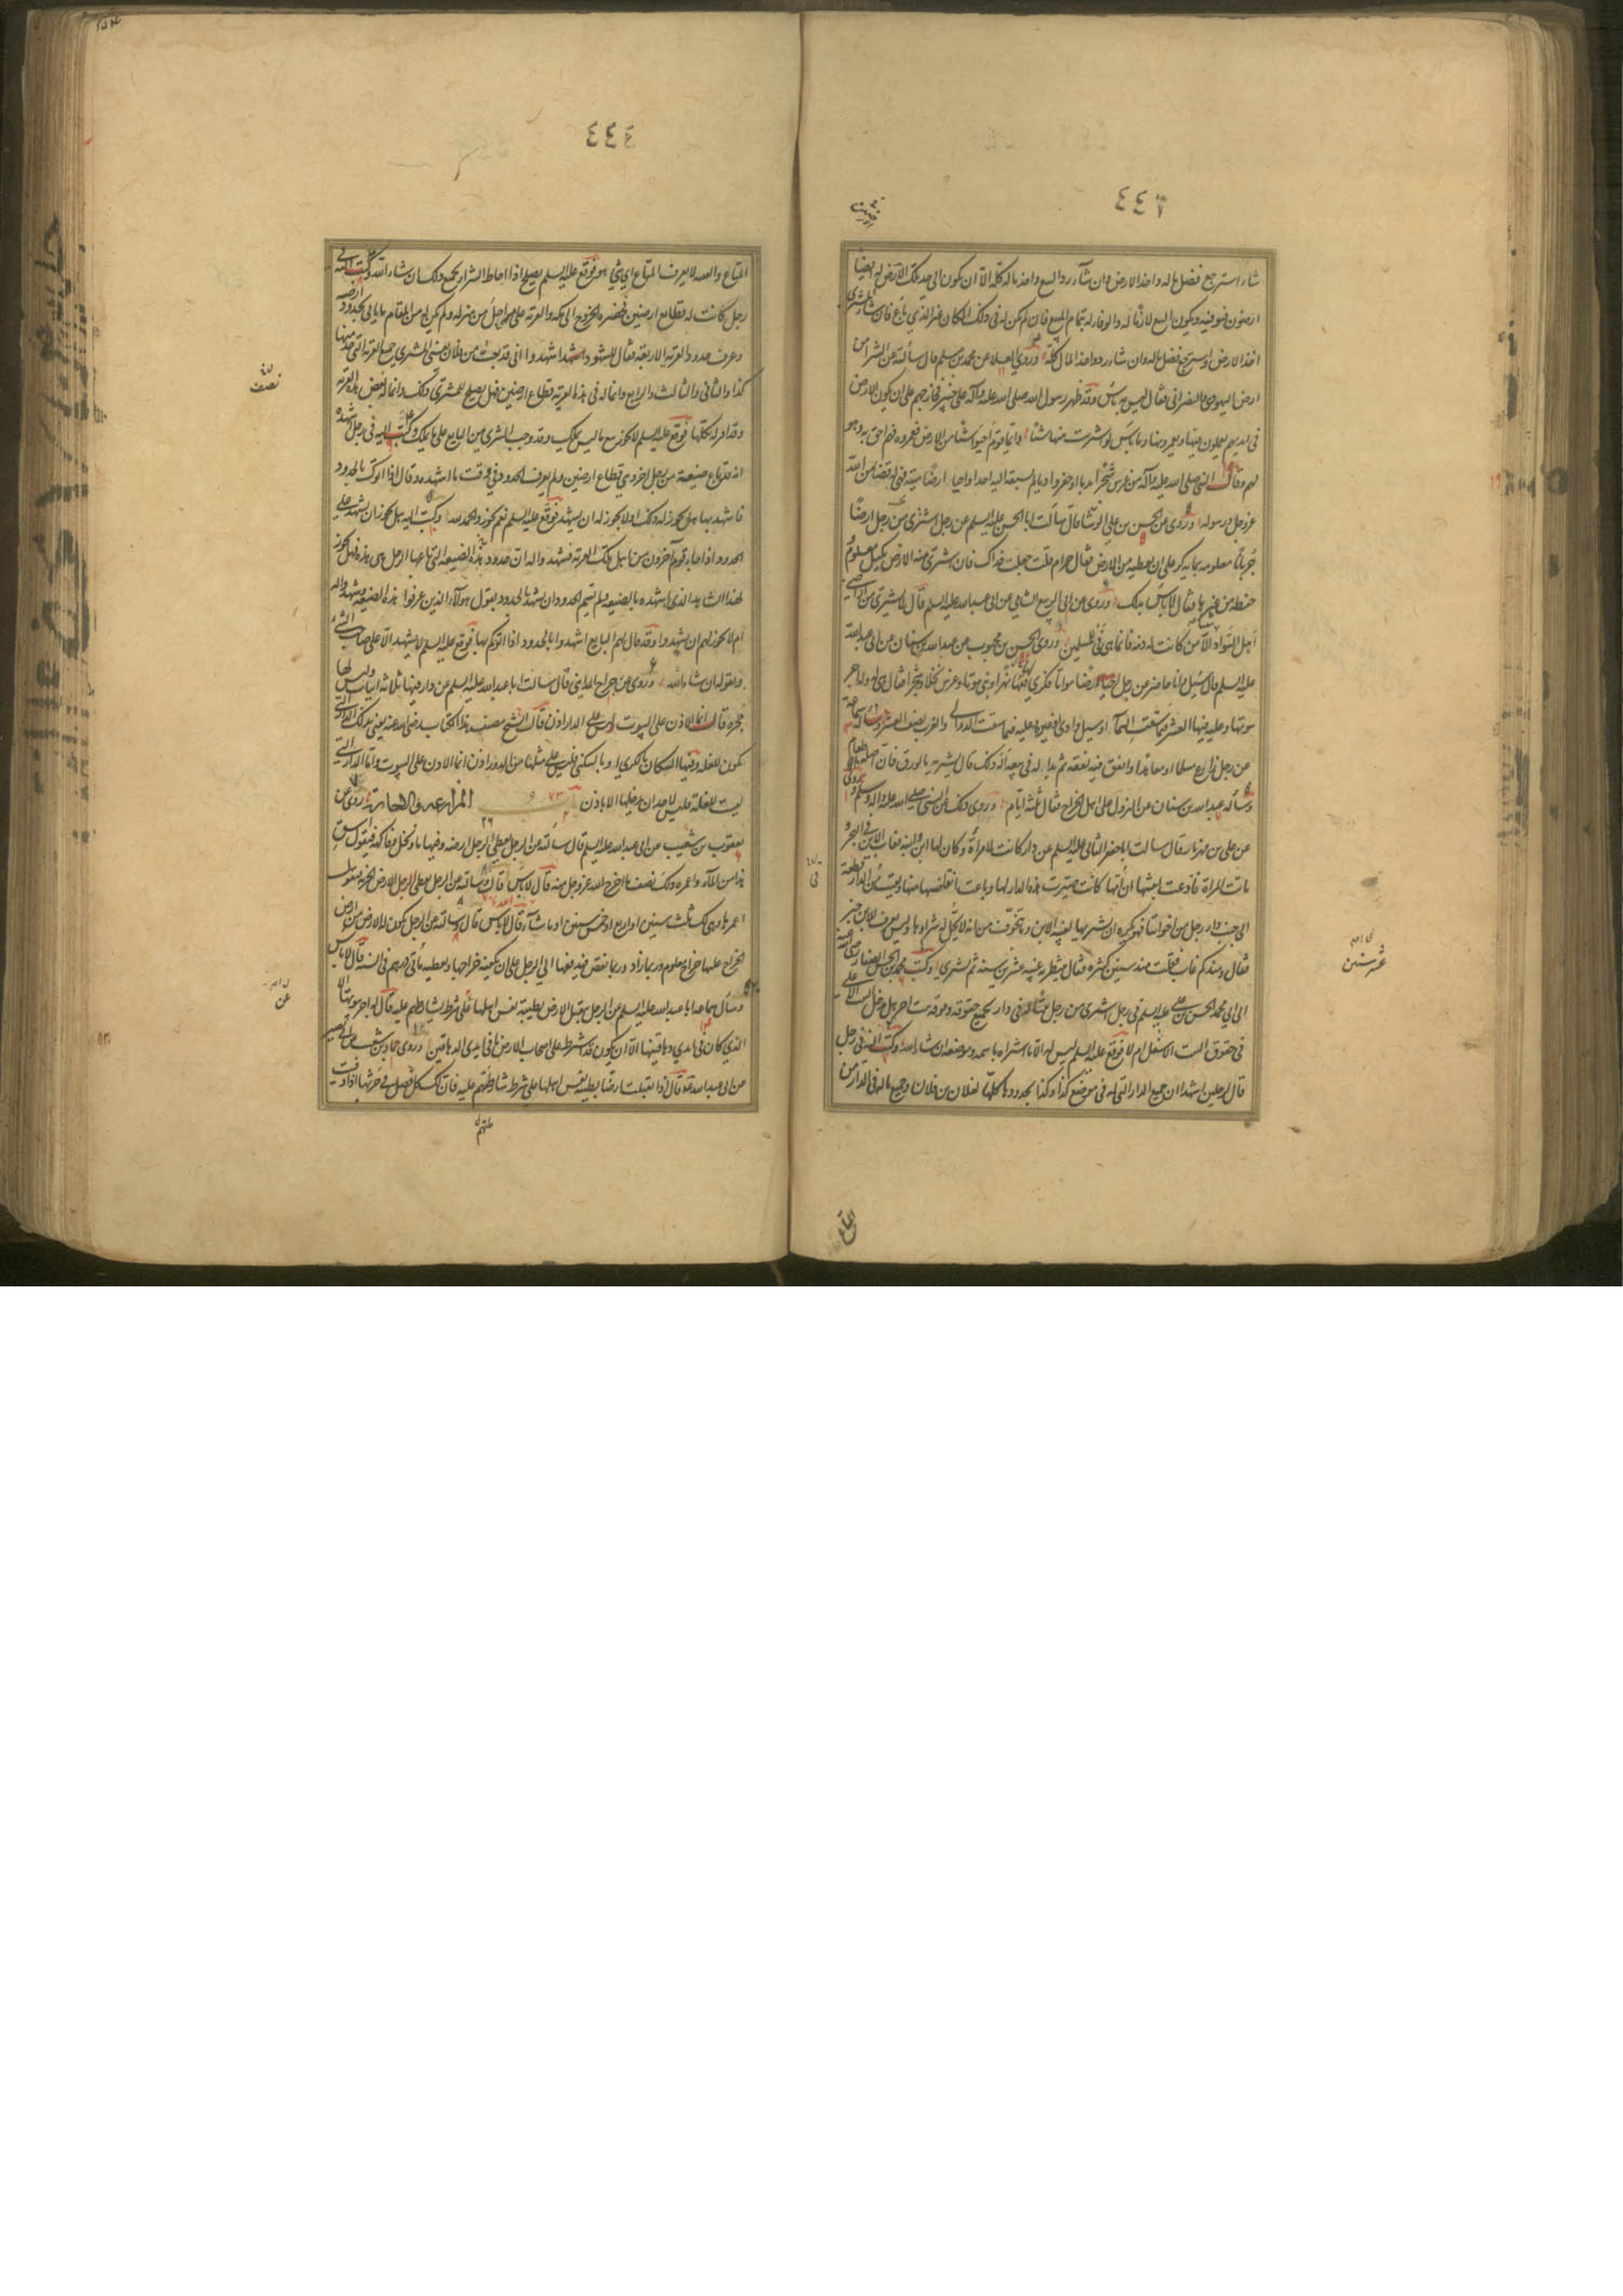 ٤٤٦
شاء استرجع فضل ماله واخذ الارض وان شاء رد البيع واخذ ماله كله الا ان يكون الى حد تلك الارض له ايضا
ارضون فيوفيه ويكون البيع لازما له والوفاء له بتمام البيع فان لم يكن له في ذلك المكان غير الذي باع فان شاء المشتري
اخذ الارض واسترجع فضل ماله وان شاء رد واخذ المال كله وروي العلا عن محمد بن مسلم قال سألته عن الشراء من
ارض اليهودي والنصراني فقال ليس به بأس وقد ظهر رسول الله صلى الله عليه وآله على خيبر فخارجهم على ان يكون الارض
في ايديهم يعملون فيها ويعمرونها وما بأس لو اشتريت منها شيئا وايما قوم احيوا شيئا من الارض فعمروه فهم احق به وهو
لهم وقال النبي صلى الله عليه وآله من غرس شجرا بديا او حفر واديا لم يسبقه اليه احد او احيا ارضا ميتة فهي له قضاء من الله
عز وجل ورسوله وروى عن الحسن بن علي الوشا قال سألت ابا الحسن عليه السلم عن رجل اشترى من رجل ارضا
جربانا معلومة بمائة كر على ان يعطيه من الارض فقال حرام قلت جعلت فداك فان اشترى منه الارض بكيل معلوم
حنطة من غيرها فقال لا بأس بذلك وروى عن ابي الربيع الشامي عن ابي عبد الله عليه السلم قال لا يشترى من اراضي
اهل السواد الا من كانت له ذمة فانما هي فئ للمسلمين وروى الحسن بن محبوب عن عبد الله بن سنان عن ابي عبد الله
عليه السلم قال سئل وانا حاضر عن رجل احيا ارضا مواتا فكرى فيها نهرا وبنى بيوتا وغرس نخلا وشجرا فقال هي له وله اجر
بيوتها وعليه فيها العشر فيما سقت السماء او سيل وادي او عين وعليه فيما سقت الدوالي والغرب نصف العشر وسأله سماعة
عن رجل زارع مسلما او معاهدا وانفق فيه نفقة ثم بدا له في بيعه اله ذلك قال يشتريه بالورق فان اصله طعام
وسأله عبد الله بن سنان عن النزول على اهل الخراج فقال ثلثة ايام وروى ذلك عن النبي صلى الله عليه واله وسلم وروى
عن علي بن مهزيار قال سالت ابا جعفر الثاني عليه السلم عن دار كانت لامرأة وكان لها ابن وابنة فغاب الابن في البحر و
ماتت المرأة فادعت ابنتها ان امها كانت صيرت هذه الدار لها وباعت اشقاصا منها وبقيت في الدار قطعة
الى جنب دار رجل من اخواننا فهو يكره ان يشتريها لغيبة الابن وما يتخوف من انه لا يحل له شراؤها وليس يعرف للابن خبر
فقال ومنذ كم غاب فقلت منذ سنين كثيرة فقال ينتظر به غيبة عشر سنين ثم يشترى وكتب محمد بن الحسن الصفار رضي الله عنه
الى ابي محمد الحسن بن علي عليه السلم في رجل اشترى من رجل بيتا له في دار بجميع حقوقه وفوقه بيت اخر هل يدخل البيت الاعلى
في حقوق البيت الاسفل ام لا فوقع عليه السلم ليس له الا ما اشتراه باسمه وموضعه ان شاء الله وكتب اليه في رجل
قال لرجلين اشهدا ان جميع الدار التي له في موضع كذا وكذا بحدودها كلها لفلان بن فلان وجميع ماله في الدار من
المتاع
عشر سنين
٤٤٤
المتاع والبينة لا يعرف المتاع اي شئ هو فوقع عليه السلم يصلح اذا احاط الشراء بجميع ذلك ان شاء الله وكتب اليه في
رجل كانت له قطاع ارضين فحضره الخروج الى مكة والقرية على مراحل من منزله ولم يكن له من المقام ما ياتي بحدود ارضه
وعرف حدود القرية الاربعة فقال للشهود اشهدوا اني قد بعت من فلان يعني المشتري جميع القرية التي حد منها
كذا والثاني والثالث والرابع وانما له في هذه القرية قطاع ارضين فهل يصلح للمشتري ذلك وانما له بعض هذه القرية
وقد اقر له بكلها فوقع عليه السلم لا يجوز بيع ما ليس يملك وقد وجب الشرى من البايع على ما يملك وكتب اليه في رجل اشهده
انه قد باع ضيعة من رجل اخر وهي قطاع ارضين ولم يعرف الحدود في وقت ما اشهده وقال اذا اتوك بالحدود
فاشهد بها هل يجوز له ذلك او لا يجوز له ان يشهد فوقع عليه السلم نعم يجوز والحمد لله وكتب اليه هل يجوز ان يشهد على
الحدود اذا جاء قوم آخرون من اهل تلك القرية فشهدوا له ان حدود هذه الضيعة التي باعها الرجل هي هذه فهل يجوز
لهذا الشاهد الذي اشهده بالضيعة ولم يسم الحدود ان يشهد بالحدود بقول هؤلاء الذين عرفوا هذه الضيعة وشهدوا له
ام لا يجوز لهم ان يشهدوا وقد قال لهم البايع اشهدوا بالحدود اذا اتوكم بها فوقع عليه السلم لا يشهد الا على صاحب الشئ
وبقوله ان شاء الله وروى عن جراح المدايني قال سألت ابا عبد الله عليه السلم عن دار فيها ثلاثة ابيات وليس لها
حجرة قال انما الاذن على البيوت ليس على الدار اذن قال الشيخ مصنف هذا الكتاب رضي الله عنه يعني بذلك الدار التي
تكون للغلة وفيها السكان بالكرى او بالسكنى فليس على مثلها من الدور اذن انما الاذن على البيوت واما الدار التي
ليست للغلة فليس لاحد ان يدخلها الا باذن المزارعة والاجارة روى عن
يعقوب بن شعيب عن ابي عبد الله عليه السلم قال سألته عن الرجل يعطي الرجل ارضه وفيها ماء ونخل وفاكهة فيقول اسق
هذا من الماء واعمره ولك نصف ما اخرج الله عز وجل منه قال لا بأس قال وسألته عن الرجل يعطي الرجل الارض الخربة فيقول
اعمرها وهي لك ثلث سنين او اربع او خمس سنين او ما شاء قال لا بأس قال وسألته عن الرجل يكون له الارض من ارض
الخراج عليها خراج معلوم وربما زاد وربما نقص فيدفعها الى الرجل على ان يكفيه خراجها ويعطيه مأتي درهم في السنة قال لا بأس
وسأل سماعة ابا عبد الله عليه السلم عن الرجل يتقبل الارض بطيبة نفس اهلها على شرط يشارطهم عليه قال له اجر بيوتها الا
الذي كان في ايدي دهاقينها الا ان يكون قد اشترط على اصحاب الارض ما في ايدي الدهاقين وروى حماد بن شعيب عن ابي بصير
عن ابي عبد الله قال اذا تقبلت ارضا بطيبة نفس اهلها على شرط شارطتهم عليه فان لك كل فضل في حرثها اذا وفيت
نصف
في
عن